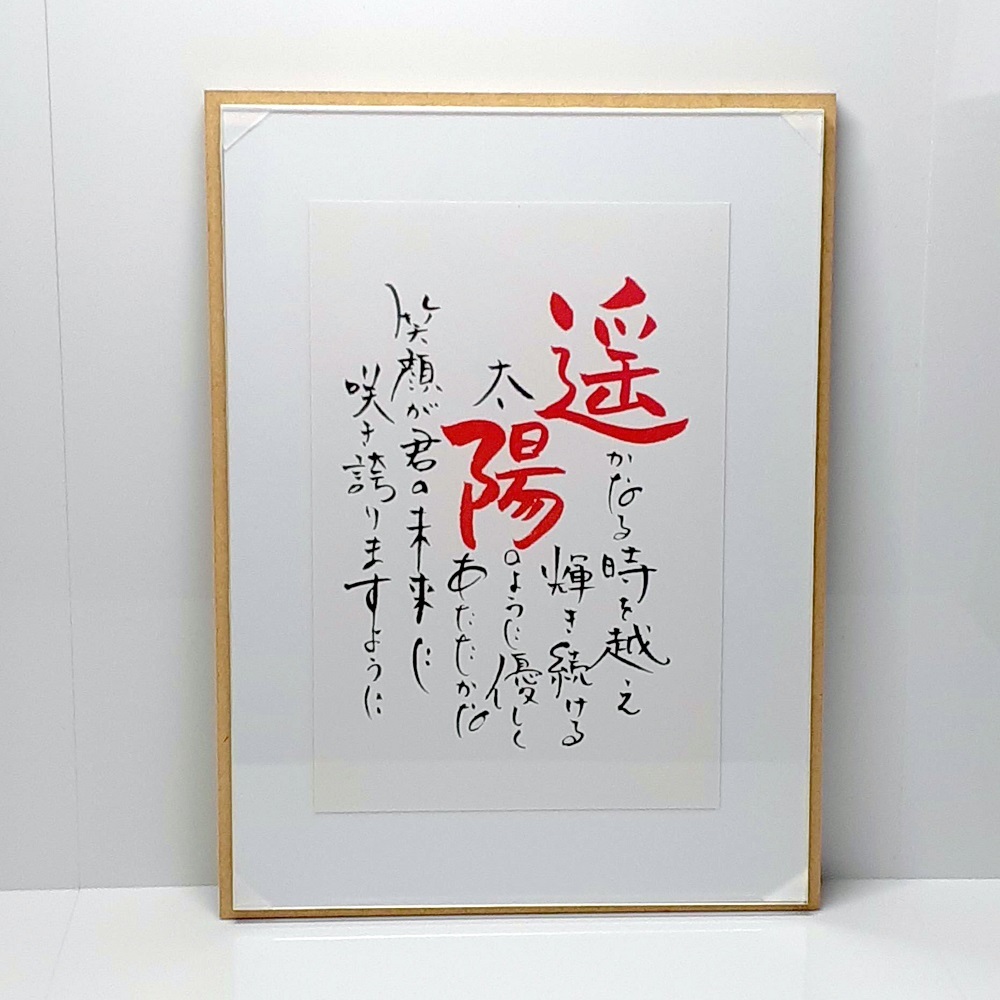 遥かなる時を越え
輝き続ける
太陽のように優しく
あたたかな
笑顔が君の未来に
咲き誇りますように